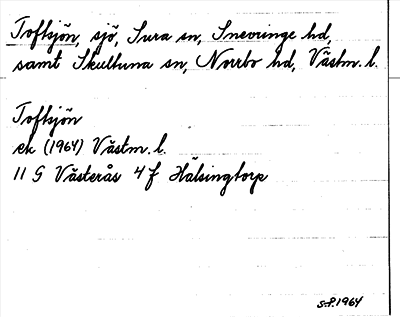 Toftsjön, sjö, Sura sn, Snevringe hd,
samt Skultuna sn, Norrbo hd, Västm. l.
Toftsjön
ek (1964) Västm. l.
11 G Västerås 4 f Hälsingtorp
S.P. 1964